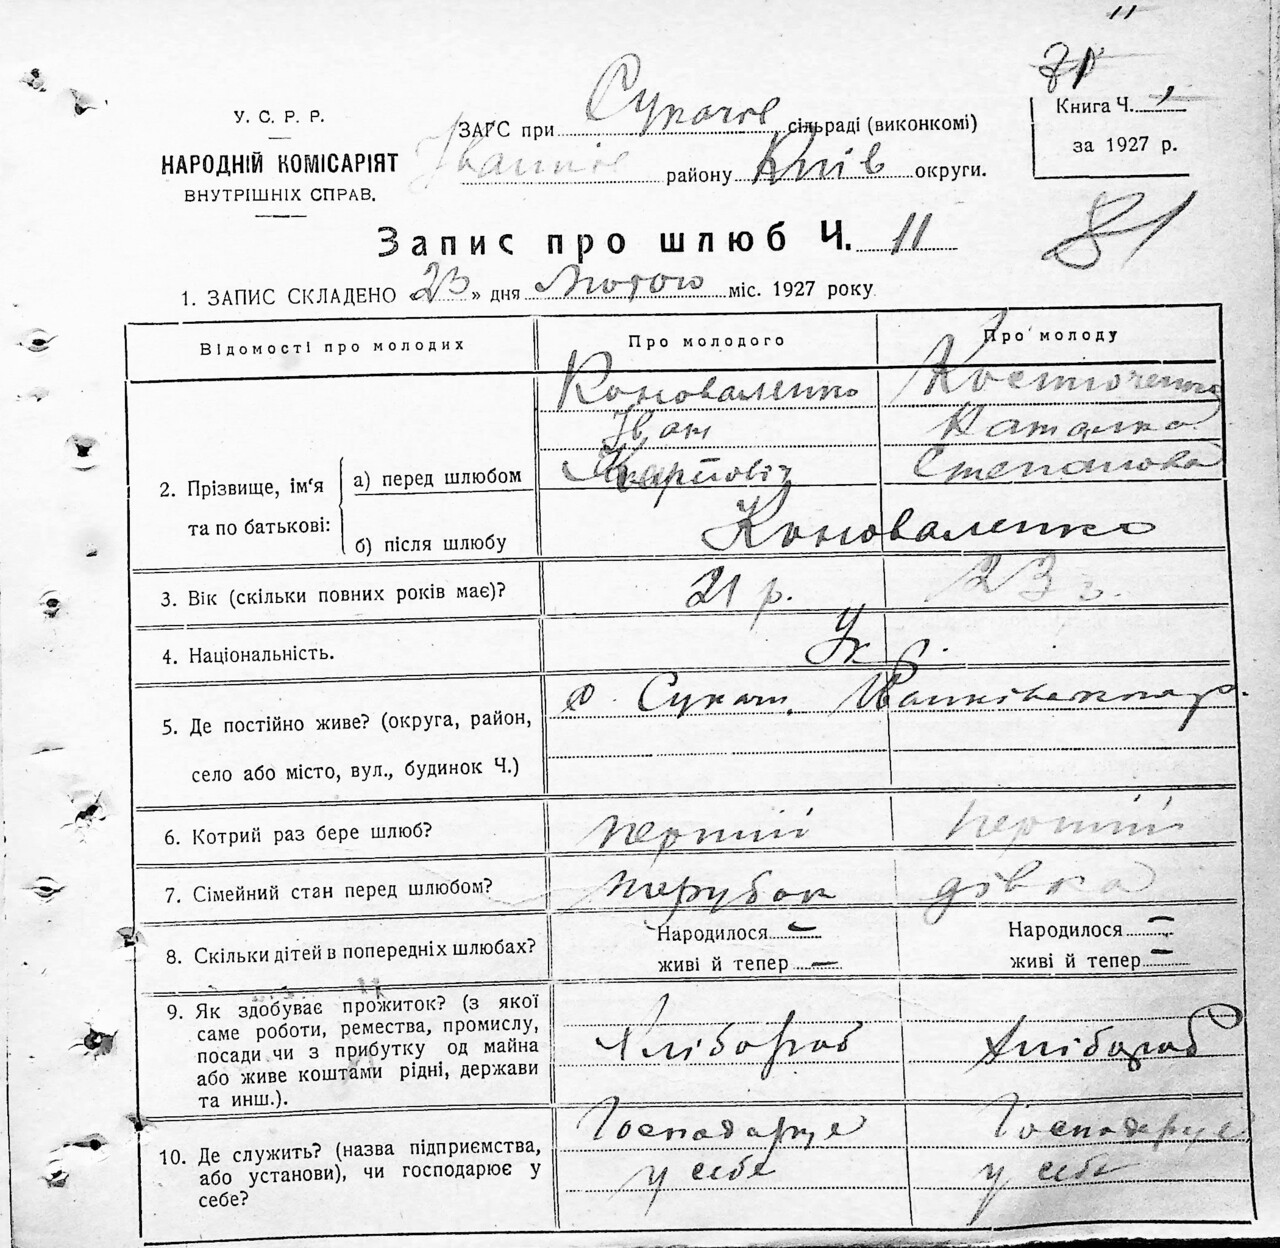 11
71
У. С. Р. Р.
НАРОДНІЙ КОМІСАРІЯТ
ВНУТРІШНІХ СПРАВ.
ЗАГС при Сукачов сільраді (виконкомі)
Іванків району Київ округи.
Книга Ч. 1
за 1927 р.
81
Запис про шлюб Ч. 11
1. ЗАПИС СКЛАДЕНО 23 » дня Лютого міс. 1927 року
Відомості про молодих Про молодого Про молоду
2. Прізвище, ім'я та по батькові:
а) перед шлюбом
Коноваленко Костюченко
Іван Наталка
Карпович Степанова
б) після шлюбу
Коноваленко
3. Вік (скільки повних років має)? 21 р. 23 р.
4. Національність. Укр.
5. Де постійно живе? (округа, район,
село або місто, вул., будинок Ч.)
с. Сукачі. Іванківськ. р.
6. Котрий раз бере шлюб? перший перший
7. Сімейний стан перед шлюбом? парубок дівка
8. Скільки дітей в попередніх шлюбах?
Народилося – Народилося –
живі й тепер – живі й тепер –
9. Як здобуває прожиток? (з якої
саме роботи, ремества, промислу,
посади чи з прибутку од майна
або живе коштами рідні, держави
та инш.).
Хлібороб Хлібороб
10. Де служить? (назва підприємства,
або установи), чи господарює у
себе?
Господарує Господарує
у себе у себе